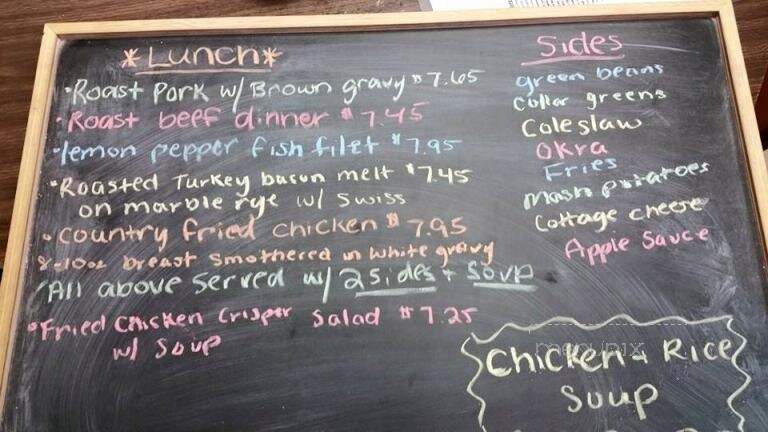 *Lunch*
·Roast Pork w/ Brown gravy $7.65
·Roast beef dinner $7.45
·lemon pepper fish filet $7.95
·Roasted Turkey bacon melt $7.45
on marble rye w/ swiss
·country fried chicken $7.95
8-10oz breast smothered in white gravy
(All above served w/ 2 sides + soup
·Fried chicken crisper salad $7.25
w/ soup
Sides
green beans
collar greens
Coleslaw
OKra
Fries
mash potatoes
Cottage cheese
Apple Sauce
Chicken + Rice
Soup
menupix